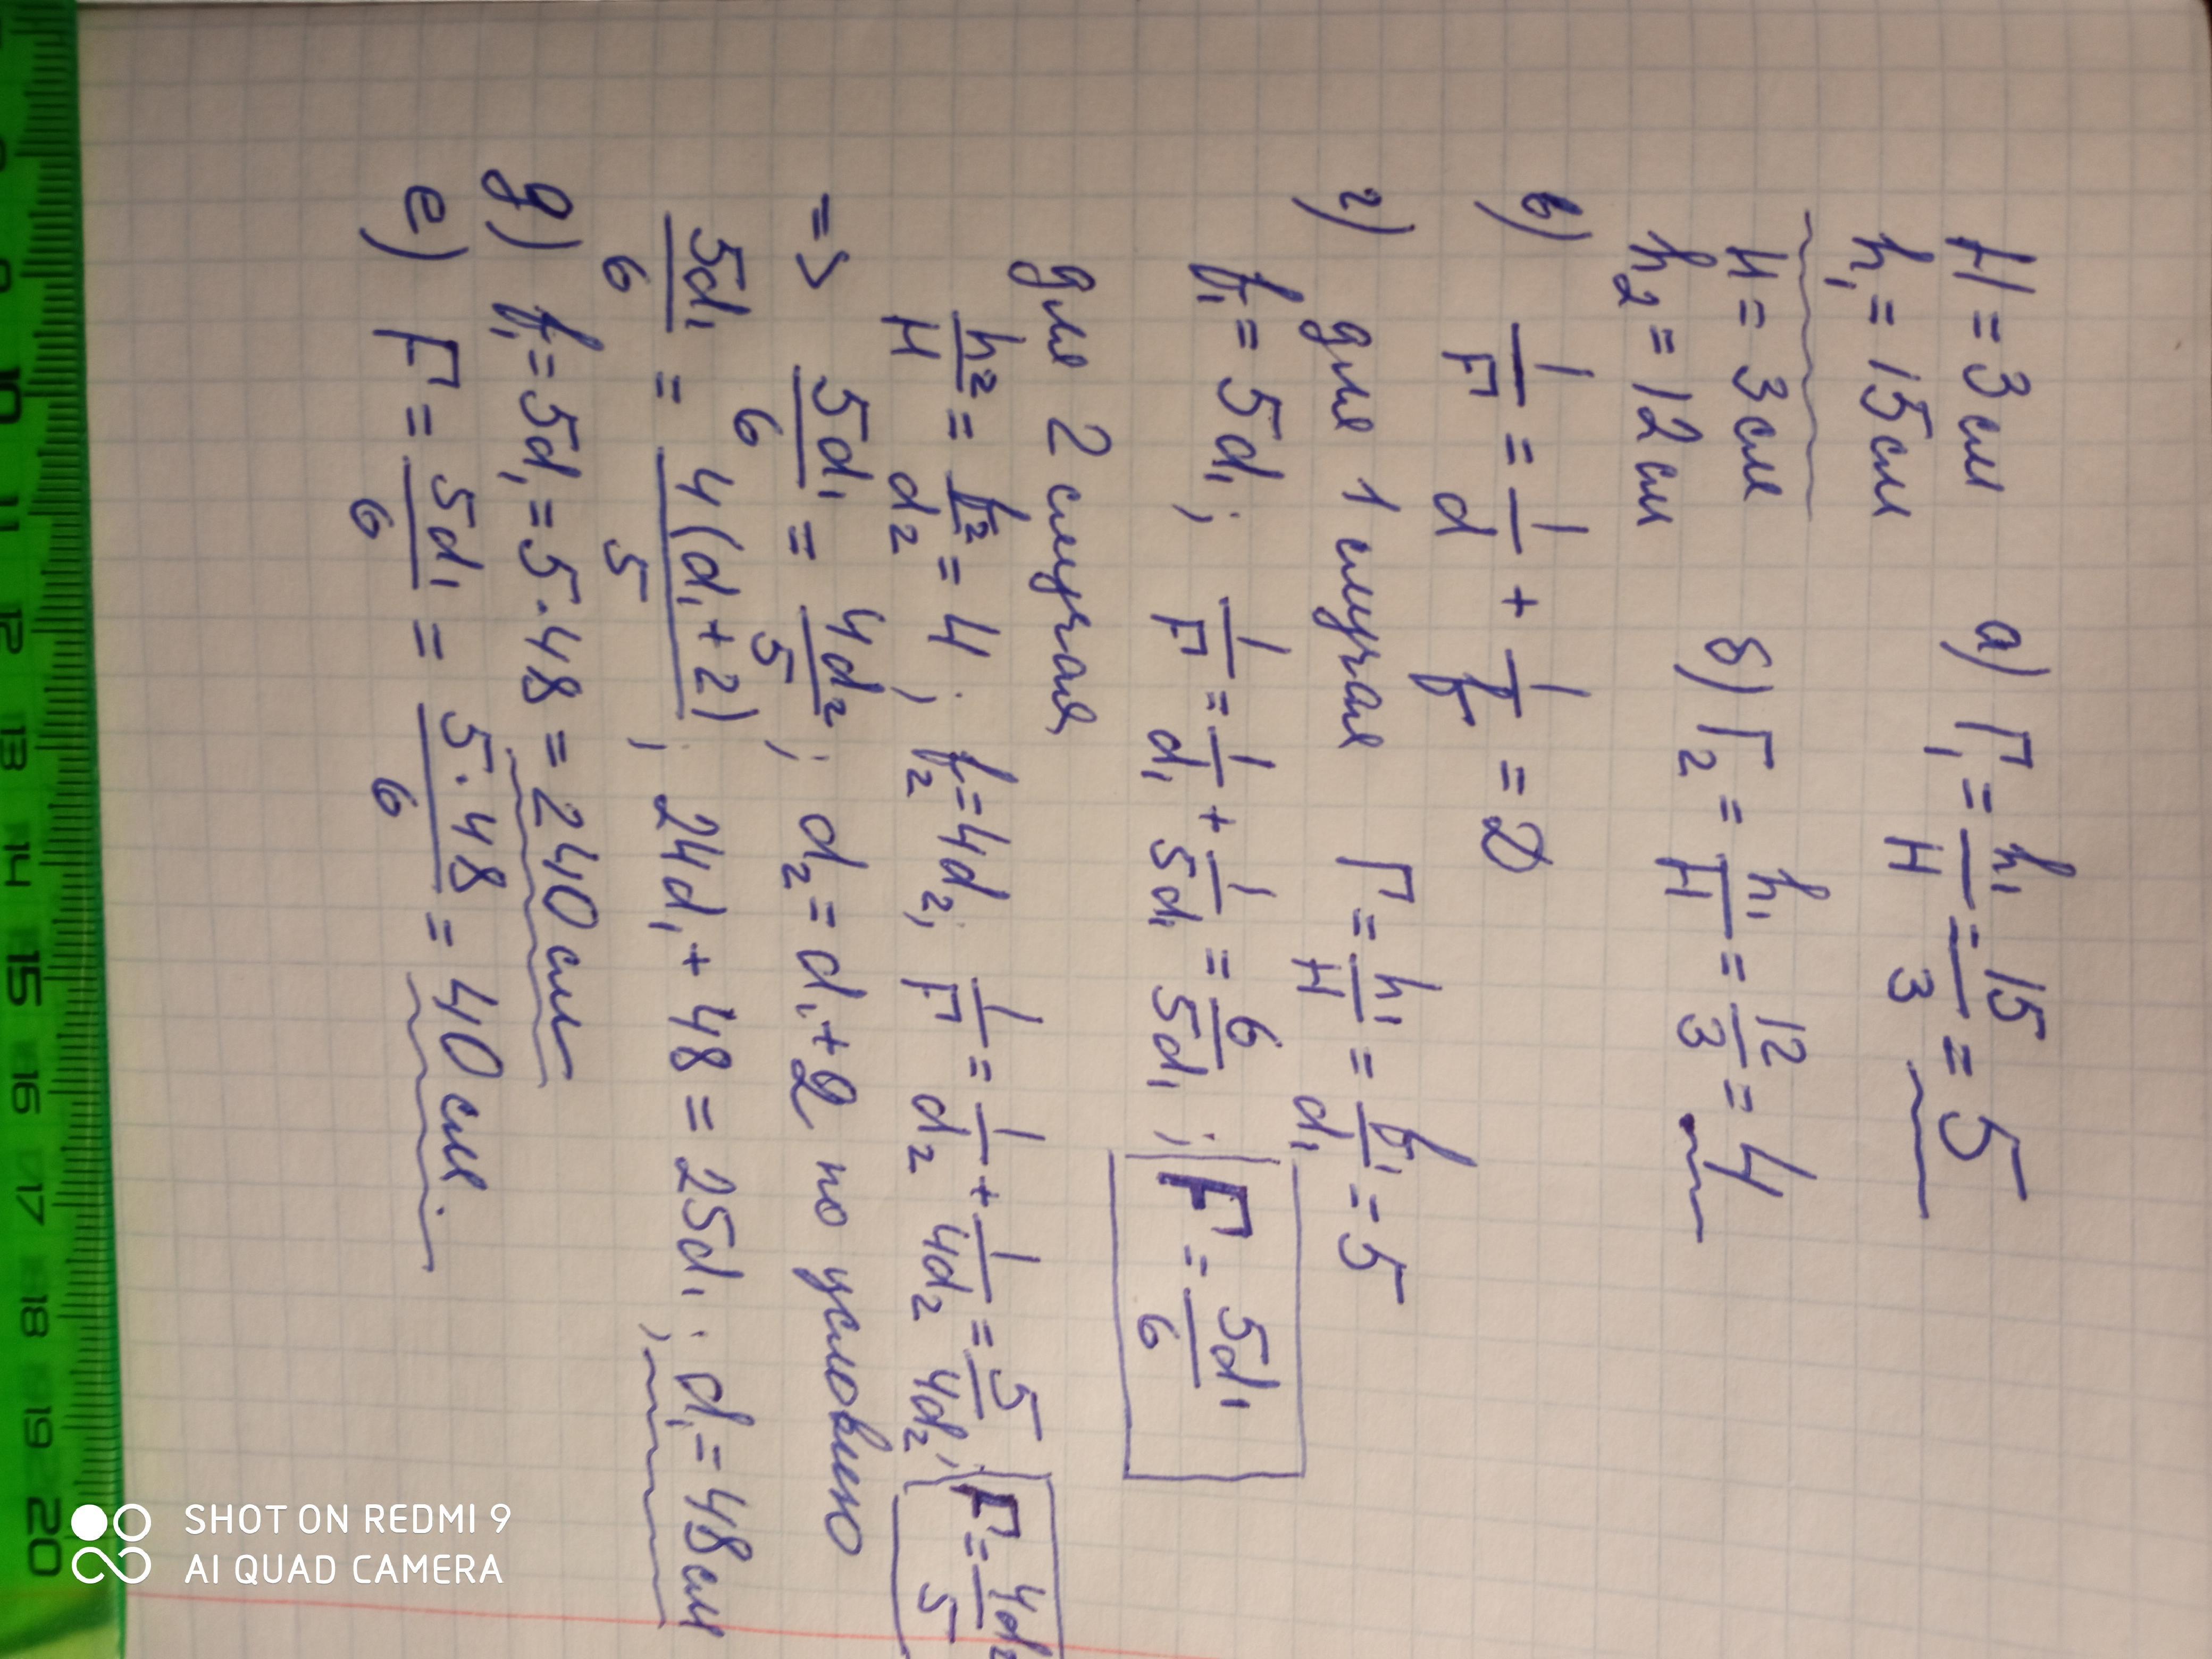 H = 3 см
h₁ = 15 см
а) Г₁ = h₁/H = 15/3 = 5
H = 3 см
h₂ = 12 см
б) Г₂ = h₁/H = 12/3 = 4
в) 1/F = 1/d + 1/f = D
г) для 1 случая Г = h₁/H = f₁/d₁ = 5
f₁ = 5d₁; 1/F = 1/d₁ + 1/5d₁ = 6/5d₁; F = 5d₁/6
для 2 случая
h₂/H = f₂/d₂ = 4; f₂ = 4d₂; 1/F = 1/d₂ + 1/4d₂ = 5/4d₂; F = 4d₂/5
=> 5d₁/6 = 4d₂/5; d₂ = d₁ + 2 по условию
5d₁/6 = 4(d₁ + 2)/5; 24d₁ + 48 = 25d₁; d₁ = 48 см
д) f₁ = 5d₁ = 5 · 48 = 240 см
е) F = 5d₁/6 = 5 · 48/6 = 40 см.
10 11 12 13 14 15 16 17 18 19 20
SHOT ON REDMI 9
AI QUAD CAMERA